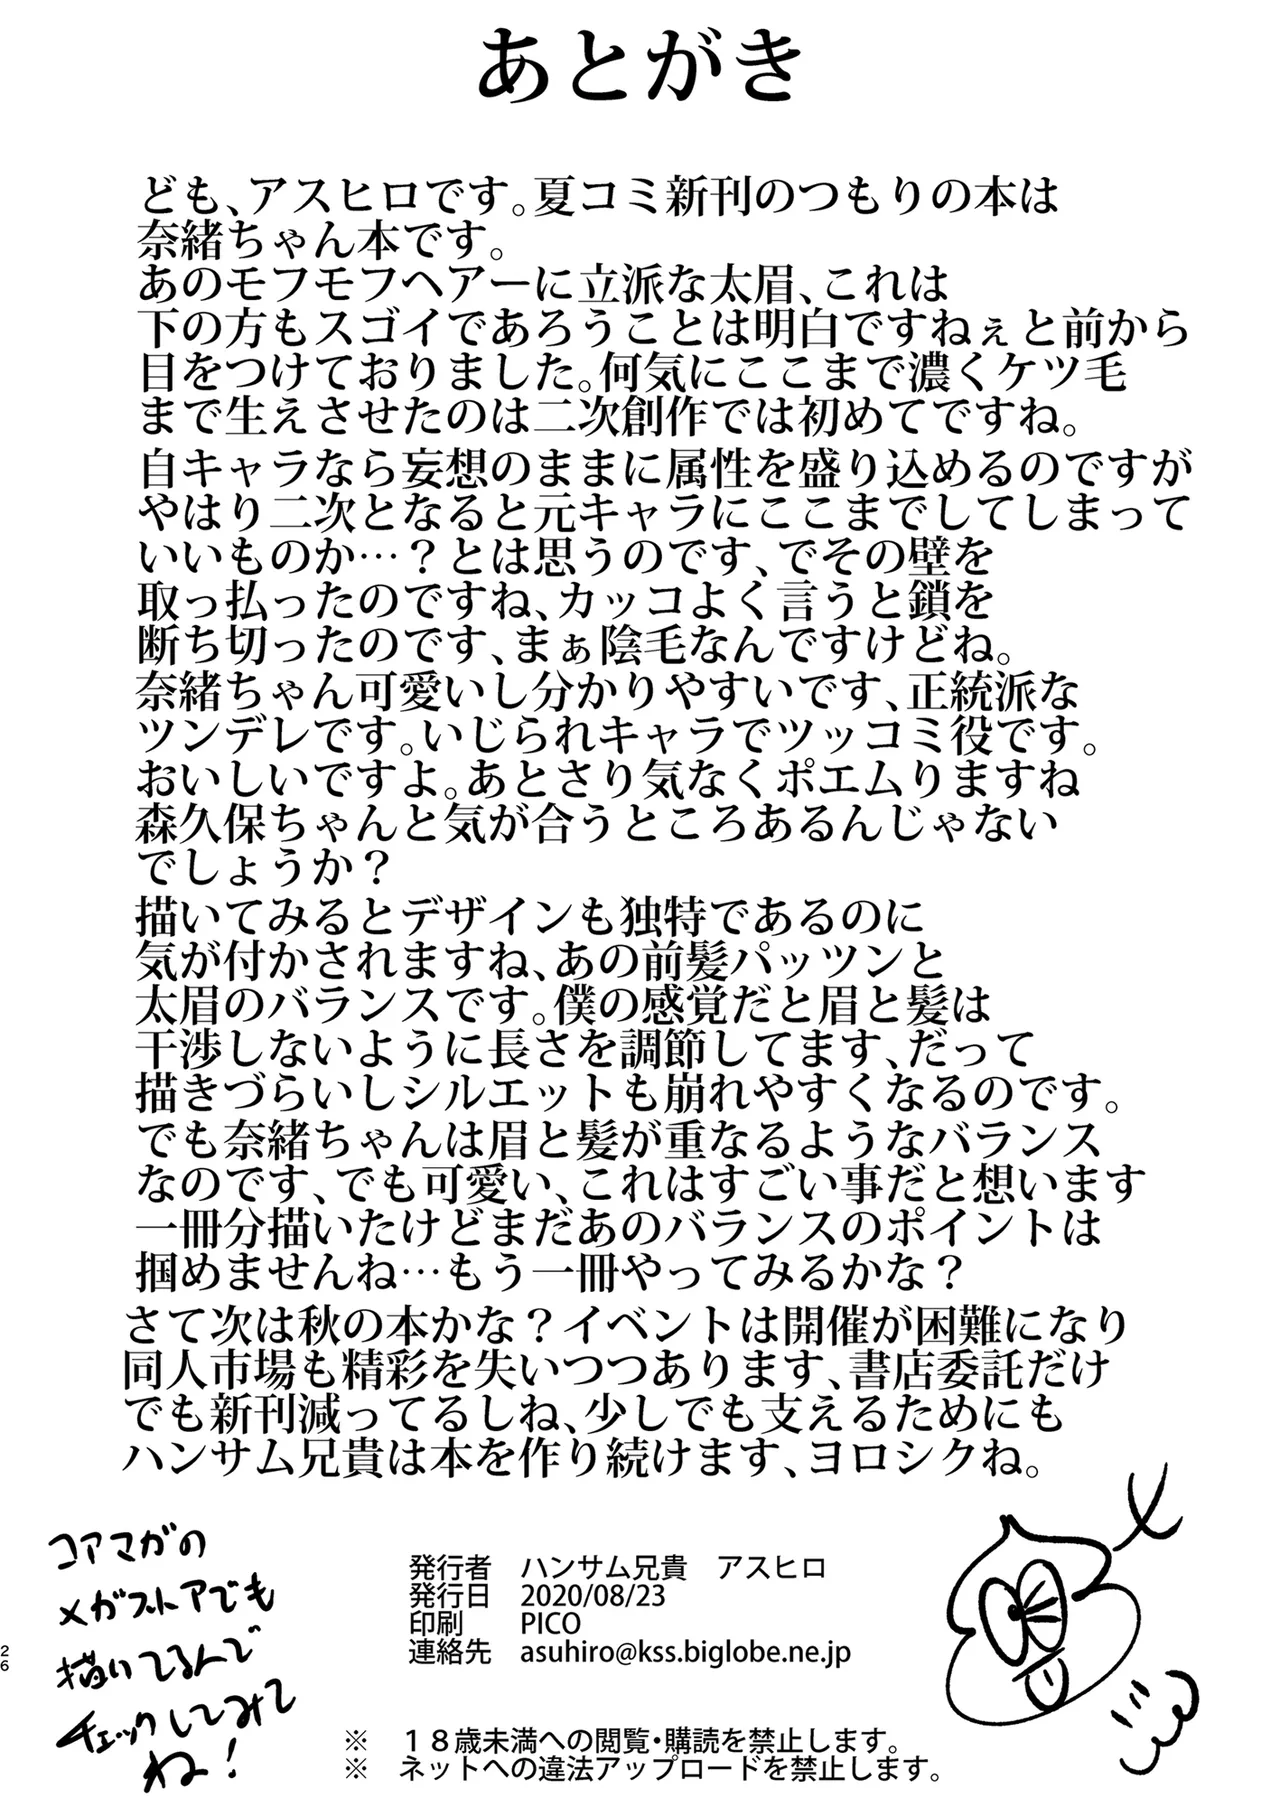 あとがき
ども、アスヒロです。夏コミ新刊のつもりの本は
奈緒ちゃん本です。
あのモフモフヘアーに立派な太眉、これは
下の方もスゴイであろうことは明白ですねぇと前から
目をつけておりました。何気にここまで濃くケツ毛
まで生えさせたのは二次創作では初めてですね。
自キャラなら妄想のままに属性を盛り込めるのですが
やはり二次となると元キャラにここまでしてしまって
いいものか…？とは思うのです、でその壁を
取っ払ったのですね、カッコよく言うと鎖を
断ち切ったのです、まぁ陰毛なんですけどね。
奈緒ちゃん可愛いし分かりやすいです、正統派な
ツンデレです。いじられキャラでツッコミ役です。
おいしいですよ。あとさり気なくポエムりますね
森久保ちゃんと気が合うところあるんじゃない
でしょうか？
描いてみるとデザインも独特であるのに
気が付かされますね、あの前髪パッツンと
太眉のバランスです。僕の感覚だと眉と髪は
干渉しないように長さを調節してます、だって
描きづらいしシルエットも崩れやすくなるのです。
でも奈緒ちゃんは眉と髪が重なるようなバランス
なのです、でも可愛い、これはすごい事だと想います
一冊分描いたけどまだあのバランスのポイントは
掴めませんね…もう一冊やってみるかな？
さて次は秋の本かな？イベントは開催が困難になり
同人市場も精彩を失いつつあります、書店委託だけ
でも新刊減ってるしね、少しでも支えるためにも
ハンサム兄貴は本を作り続けます、ヨロシクね。
コアマガの
メガストアでも
描いてるんで
チェックしてみて
ね！
発行者　ハンサム兄貴　アスヒロ
発行日　2020/08/23
印刷　PICO
連絡先　asuhiro@kss.biglobe.ne.jp
※　１８歳未満への閲覧・購読を禁止します。
※　ネットへの違法アップロードを禁止します。
26